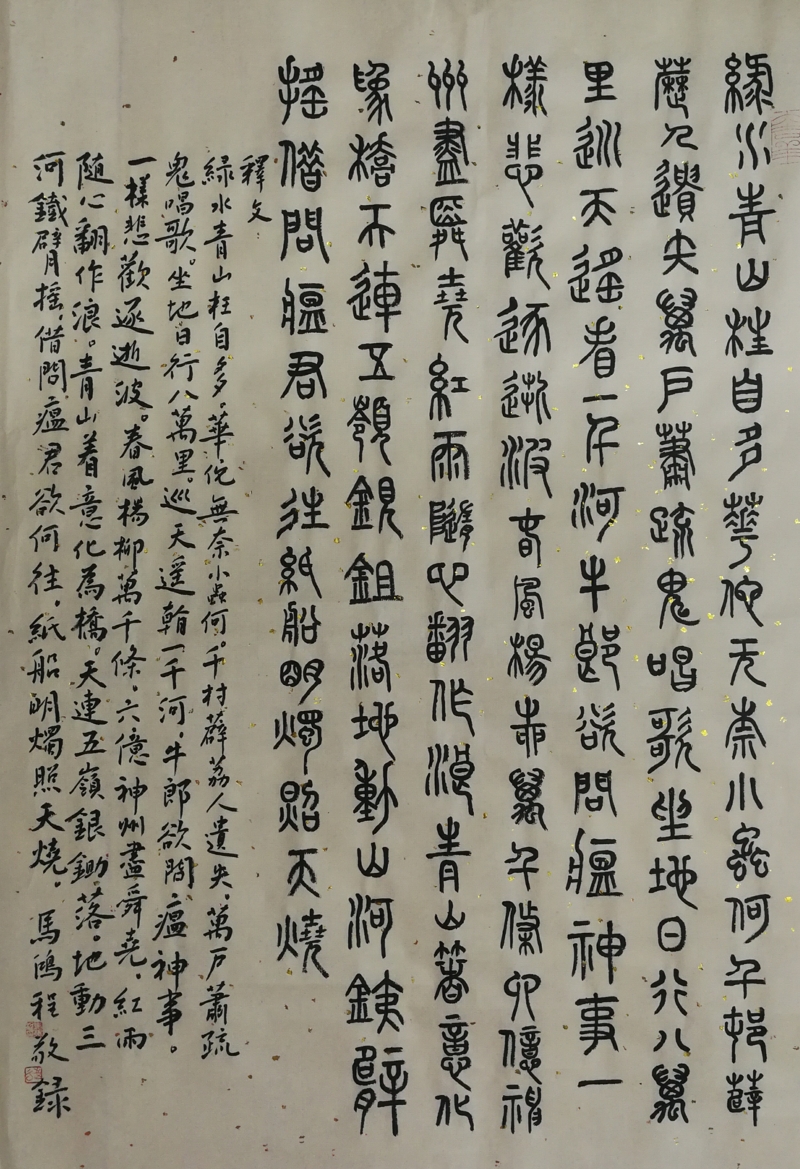 綠水青山枉自多華佗无奈小蟲何千村薜
荔人遺失萬戶蕭疏鬼唱歌坐地日行八萬
里巡天遙看一千河牛郎欲問瘟神事一
樣悲歡逐逝波春風楊柳萬千條六億神
州盡舜堯紅雨隨心翻作浪青山著意化
為橋天連五嶺銀鋤落地動山河鐵臂
搖借問瘟君欲往紙船明燭照天燒
釋文
綠水青山枉自多，華佗無奈小蟲何。千村薜荔人遺失，萬戶蕭疏
鬼唱歌。坐地日行八萬里。巡天遙看一千河，牛郎欲問瘟神事。
一樣悲歡逐逝波。春風楊柳萬千條，六億神州盡舜堯，紅雨
隨心翻作浪。青山着意化為橋。天連五嶺銀鋤落。地動三
河鐵臂搖。借問瘟君欲何往，紙船明燭照天燒，馬鴻程敬錄